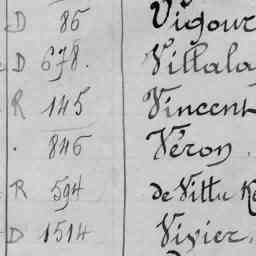 D 86 Vigour
D 678. Villala
R 145 Vincent
. 846 Véron.
R 594 de Villu Ke
D 1514 Vivier.